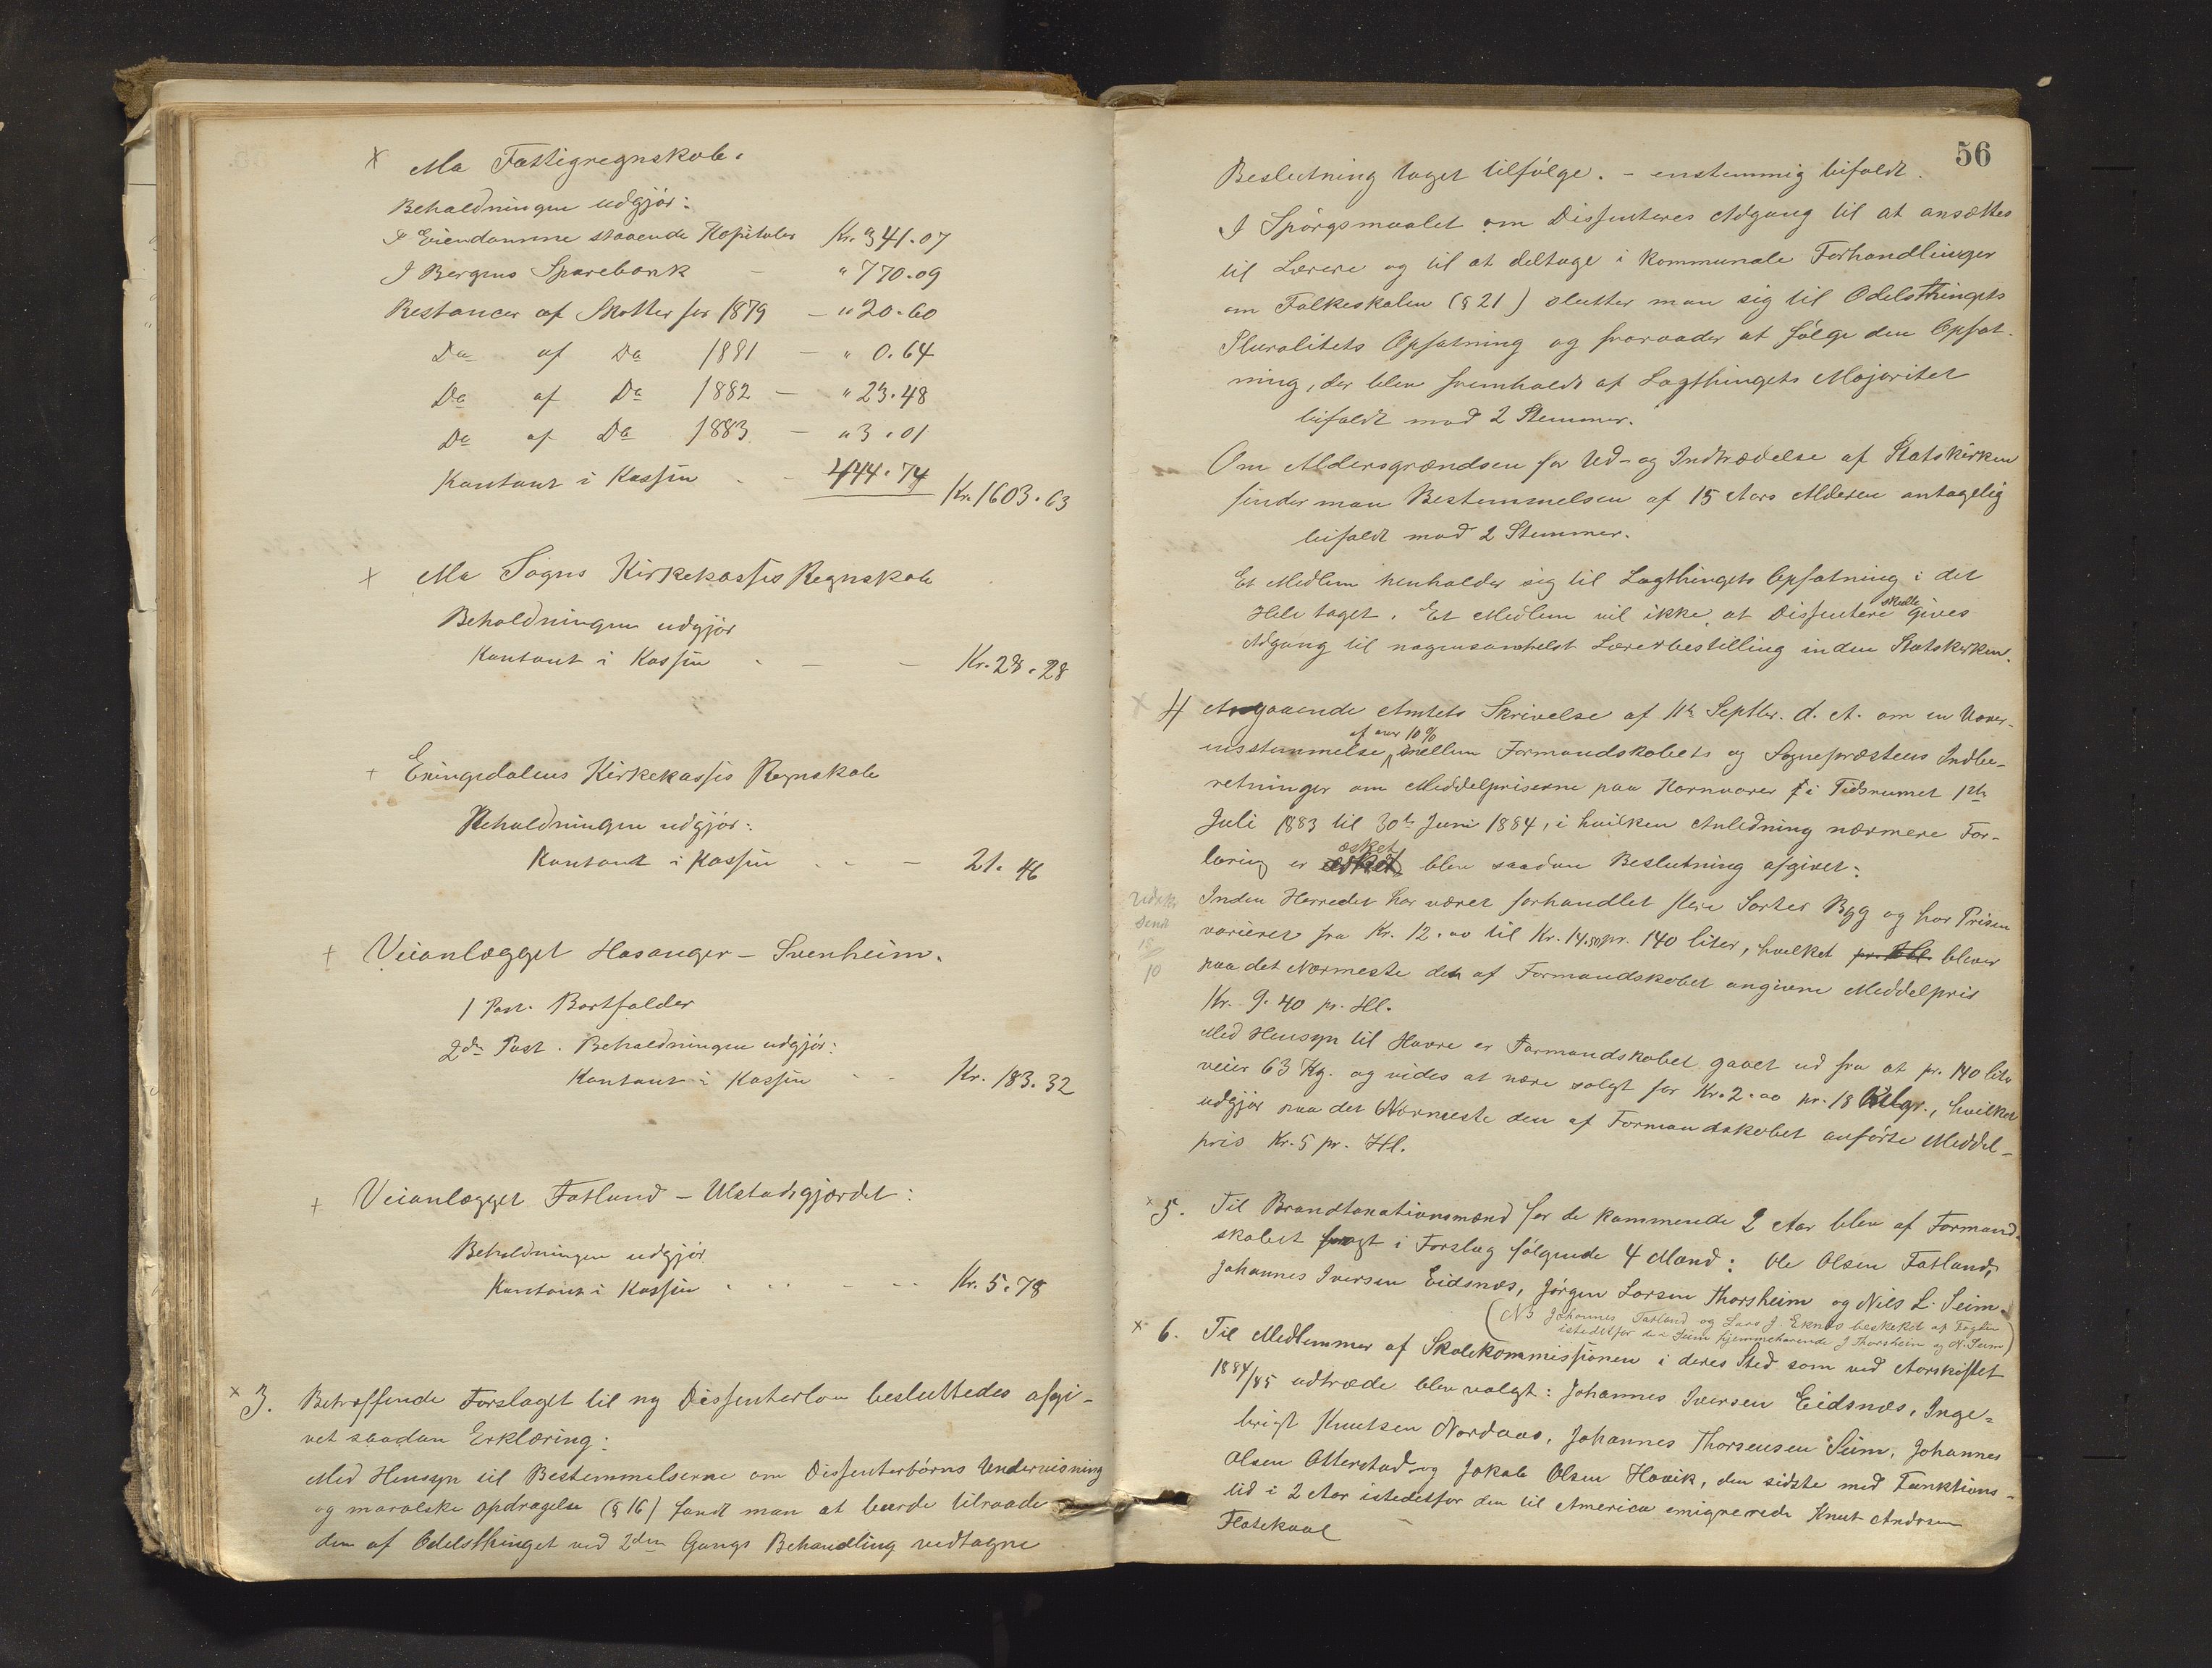 Mo Fattigregnskab.
Beholdningen udgjør:
I Eiendomme staaende Kapitaler Kr. 341.07
I Bergens Sparebank - " 770.09
Restancer af Skatter for 1879 - " 20.60
Do af Do 1881 - " 0.64
Do af Do 1882 - " 23.48
Do af Do 1883 - " 3.01
Kontant i Kassen - - 444.74 Kr. 1603.63
Mo Sogns Kirkekasses Regnskab
Beholdningen udgjør
Kontant i Kassen - - - Kr. 28.28
Exingedalens Kirkekasses Regnskab
Beholdningen udgjør:
Kontant i Kassen - - - 21.46
Veianlægget Hosanger - Svenheim.
1 Post. Bortfalder
2den Post. Beholdningen udgjør:
Kontant i Kassen - - Kr. 183.32
Veianlægget Fatland - Ulstadgjærdet:
Beholdningen udgjør
Kontant i Kassen - - - Kr. 5.78
× 3. Betræffende Forslaget til ny Dissenterlov besluttedes afgi-
vet saadan Erklæring:
Med Hensyn til Bestemmelserne om Dissenterbørns Undervisning
og moralske Opdragelse (§ 16) fandt man at burde tilraade
den af Odelsthinget ved 2den Gangs Behandling vedtagne
56
Beslutning taget tilfølge. - enstemmig bifaldt.
I Spørgsmaalet om Dissenteres Adgang til at ansættes
til Lærere og til at deltage i kommunale Forhandlinger
om Folkeskolen (§ 21) slutter man sig til Odelsthingets
Pluralitets Opfatning og fraraader at følge den Opfat-
ning, der blev fremholdt af Lagthingets Majoritet
bifaldt mod 2 Stemmer.
Om Aldersgrændsen for Ud- og Indtrædelse af Statskirken
finder man Bestemmelsen af 15 Aars Alderen antagelig
bifaldt mod 2 Stemmer.
Et Medlem henholder sig til Lagthingets Opfatning i det
Hele taget. Et Medlem vil ikke, at Dissentere skulle gives
Adgang til nogensomhelst Lærerbestilling inden Statskirken.
× 4 Angaaende Amtets Skrivelse af 11te Septbr. d. A. om en Uover-
ensstemmelse af over 10 % mellem Formandskabets og Sognepræstens Indbe-
retninger om Middelpriserne paa Kornvarer i Tidsrummet 1ste
Juli 1883 til 30te Juni 1884, i hvilken Anledning nærmere For-
klaring er æsket blev saadan Beslutning afgivet:
Udskr.
sendt
18/10
Inden Herredet har været forhandlet flere Sorter Byg og har Prisen
varieret fra Kr. 12.00 til Kr. 14.50 pr. 140 liter, hvilket pr. Hl. bliver
paa det Nærmeste den af Formandskabet angivne Middelpris
Kr. 9.40 pr. Hl.
Med Hensyn til Havre er Formandskabet gaaet ud fra at pr. 140 liter
veier 63 Kg. og vides at være solgt for Kr. 2.00 pr. 18 Kilgr., hvilket
udgjør paa det Nærmeste den af Formandskabet anførte Middel-
pris Kr. 5 pr. Hl.
× 5. Til Brandtaxationsmænd for de kommende 2 Aar blev af Formand-
skabet bragt i Forslag følgende 4 Mænd: Ole Olsen Fatland,
Johannes Iversen Eidsnes, Jørgen Larsen Thorsheim og Nils L. Seim.
(NB Johannes Fatland og Lars J. Eknes beskikket af Fogden
istedetfor de i Seim hjemmehørende J Thorsheim og N. Seim)
× 6. Til Medlemmer af Skolekommissionen i deres Sted som ved Aarsskiftet
1884/85 udtræde blev valgt: Johannes Iversen Eidsnes, Inge-
brigt Knutsen Nordaas, Johannes Thorsensen Seim, Johannes
Olsen Otterstad og Jakob Olsen Hovik, den sidste med Funktions-
tid i 2 Aar istedetfor den til America emigrerede Knut Andersen
Flatekval